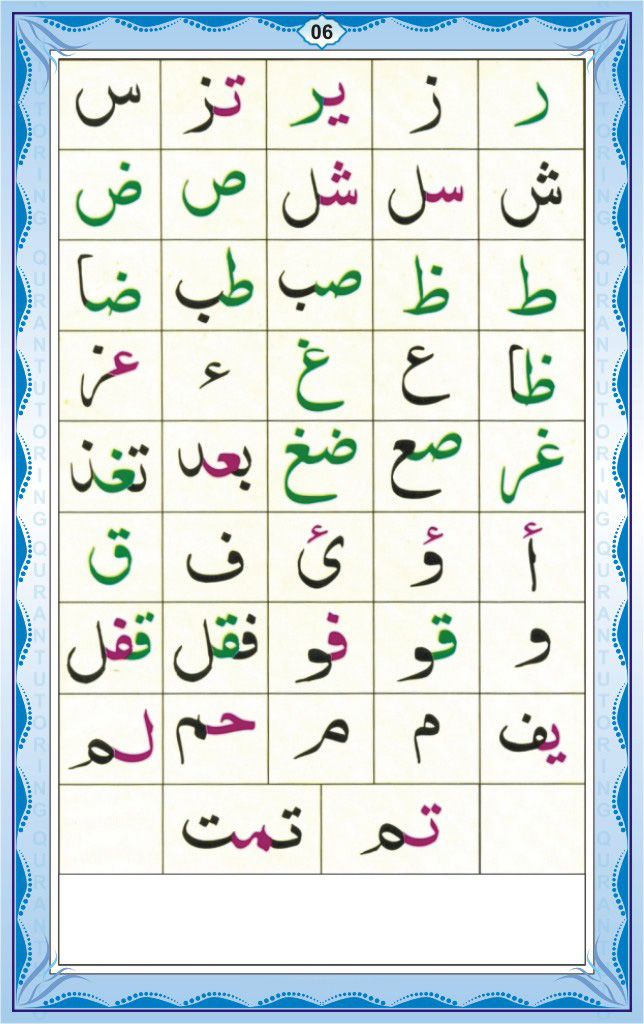 06
ر ز یر تز س
ش سل شل ص ض
ط ظ صب طب ضا
ظا ع غ ء عز
غر صع ضغ بعد تغذ
أ ؤ ئ ف ق
و قو فو فقل قفل
یف م مر حم لم
تم تمت
QURAN TUTORING QURAN TUTORING
QURAN TUTORING QURAN TUTORING